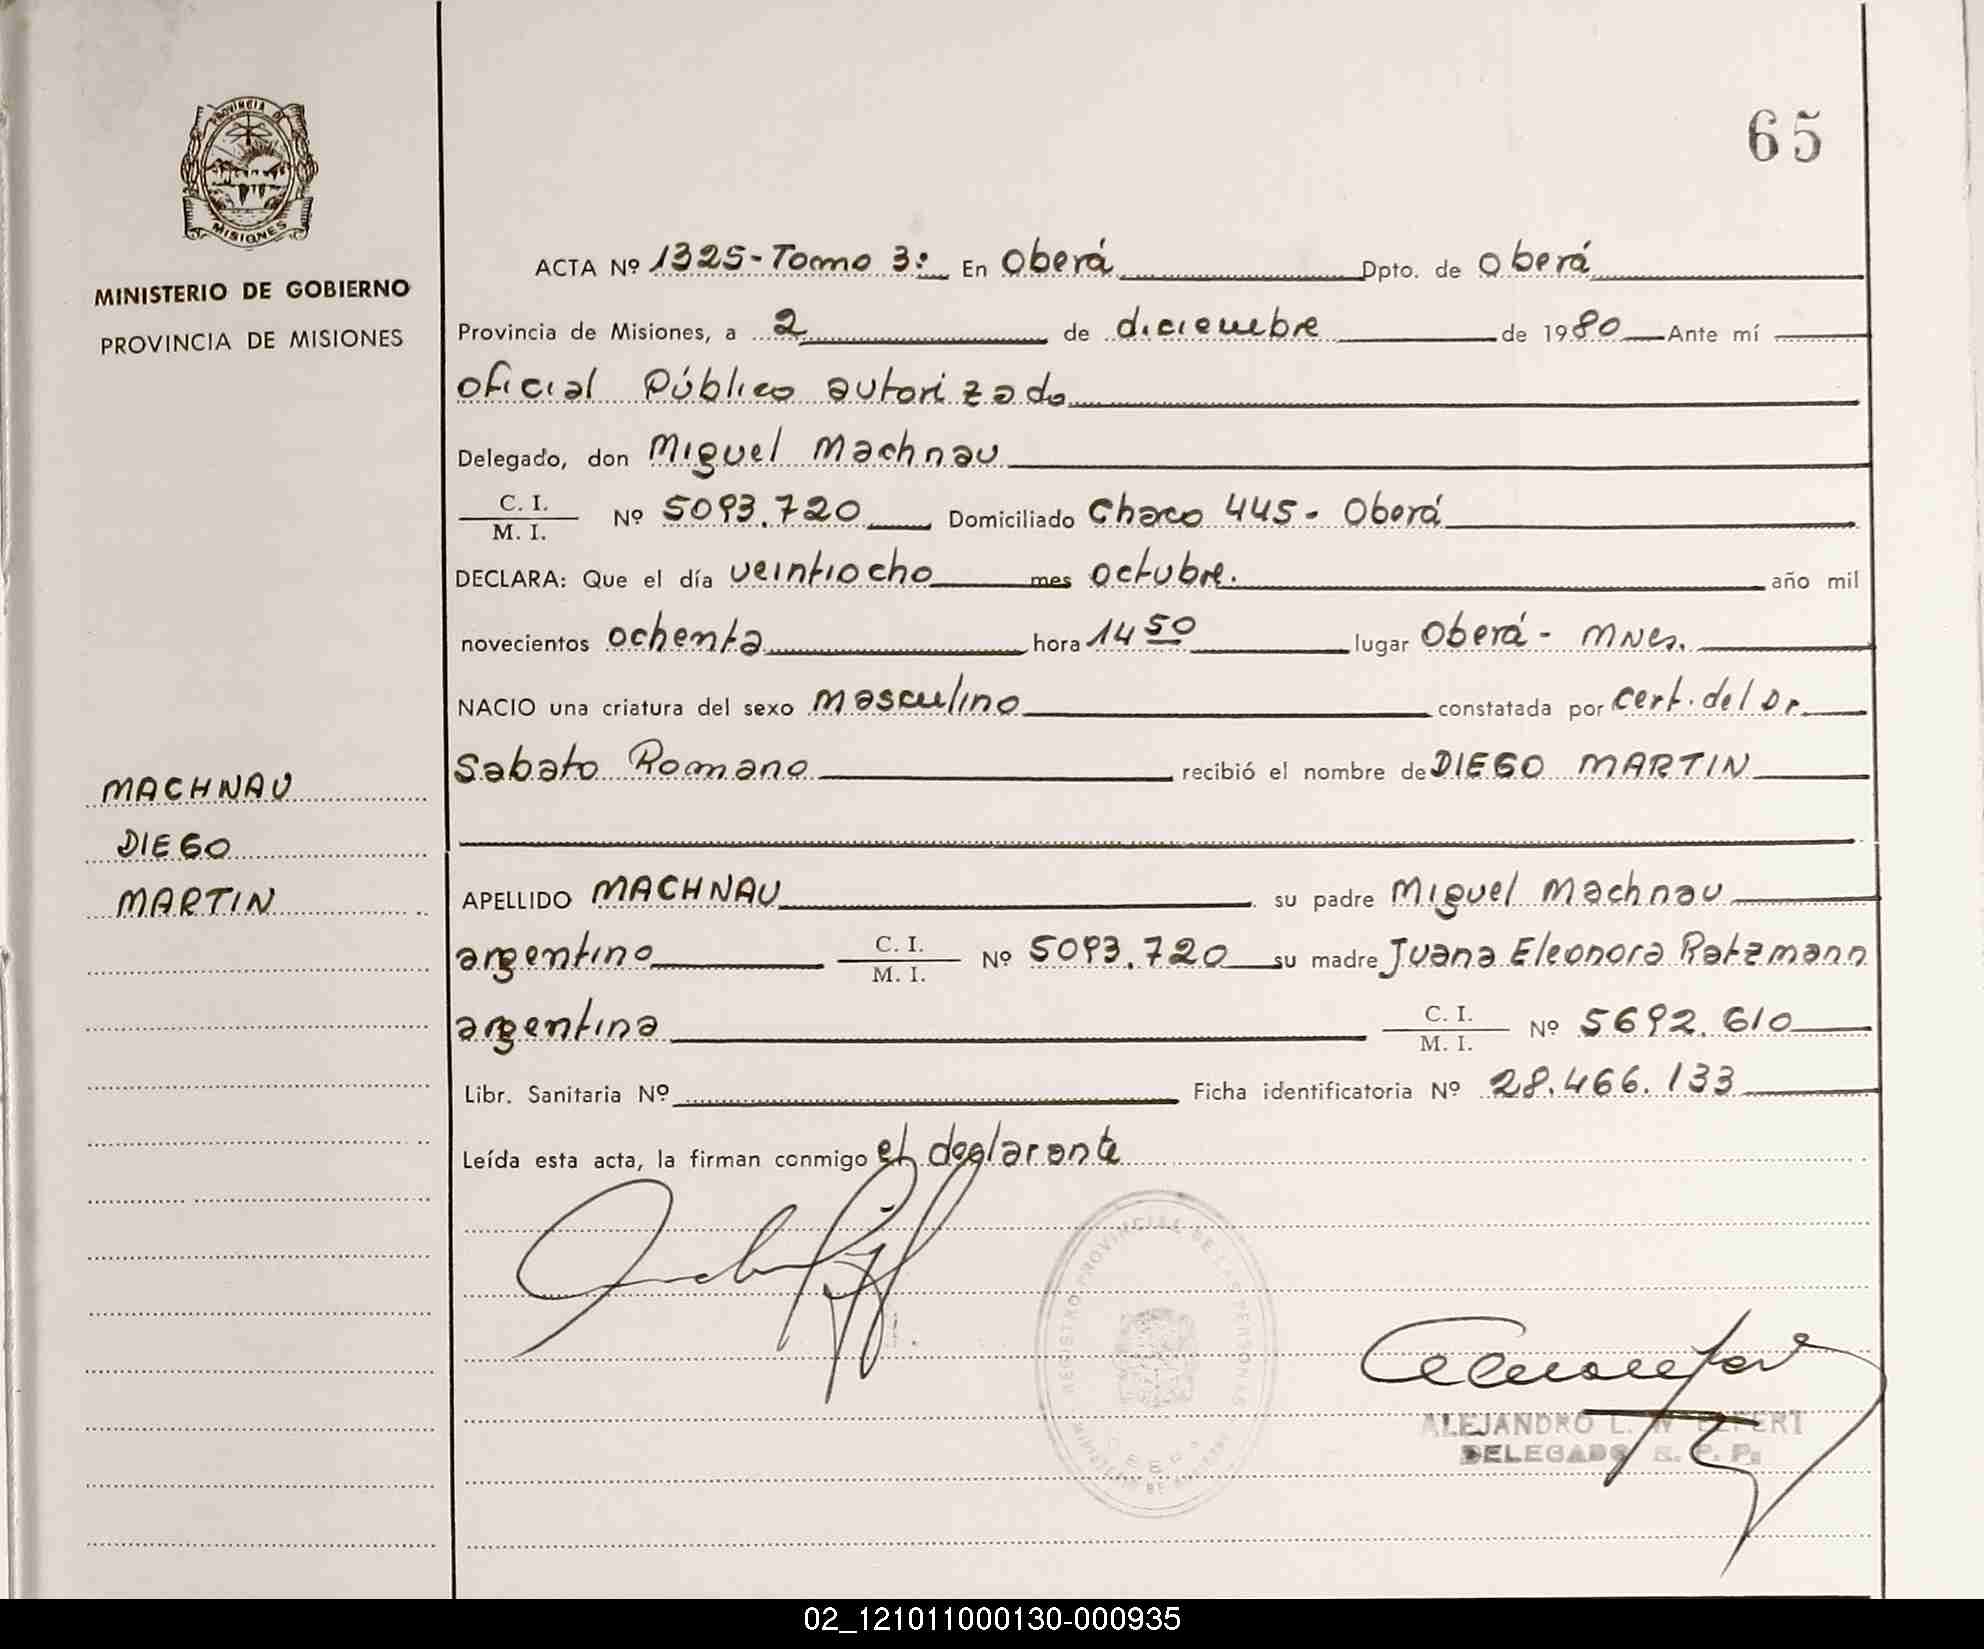 PROVINCIA DE
MISIONES
MINISTERIO DE GOBIERNO
PROVINCIA DE MISIONES
65
ACTA Nº 1325-Tomo 3: En Oberá Dpto. de Oberá
Provincia de Misiones, a 2 de diciembre de 1980 Ante mí
oficial Público autorizado
Delegado, don Miguel Machnau
C. I.
M. I. Nº 5093.720 Domiciliado Chaco 445 - Oberá
DECLARA: Que el día veintiocho mes octubre. año mil
novecientos ochenta hora 14 50 lugar Oberá - Mnes.
NACIO una criatura del sexo masculino constatada por cert. del Dr.
Sabato Romano recibió el nombre de DIEGO MARTIN
MACHNAU
DIEGO
MARTIN
APELLIDO MACHNAU su padre Miguel Machnau
argentino C. I.
M. I. Nº 5093.720 su madre Juana Eleonora Ratzmann
argentina C. I.
M. I. Nº 5692.610
Libr. Sanitaria Nº Ficha identificatoria Nº 28.466.133
Leída esta acta, la firman conmigo el declarante
REGISTRO PROVINCIAL DE LAS PERSONAS
ALEJANDRO L. W
DELEGADO R. P. P.
02_121011000130-000935